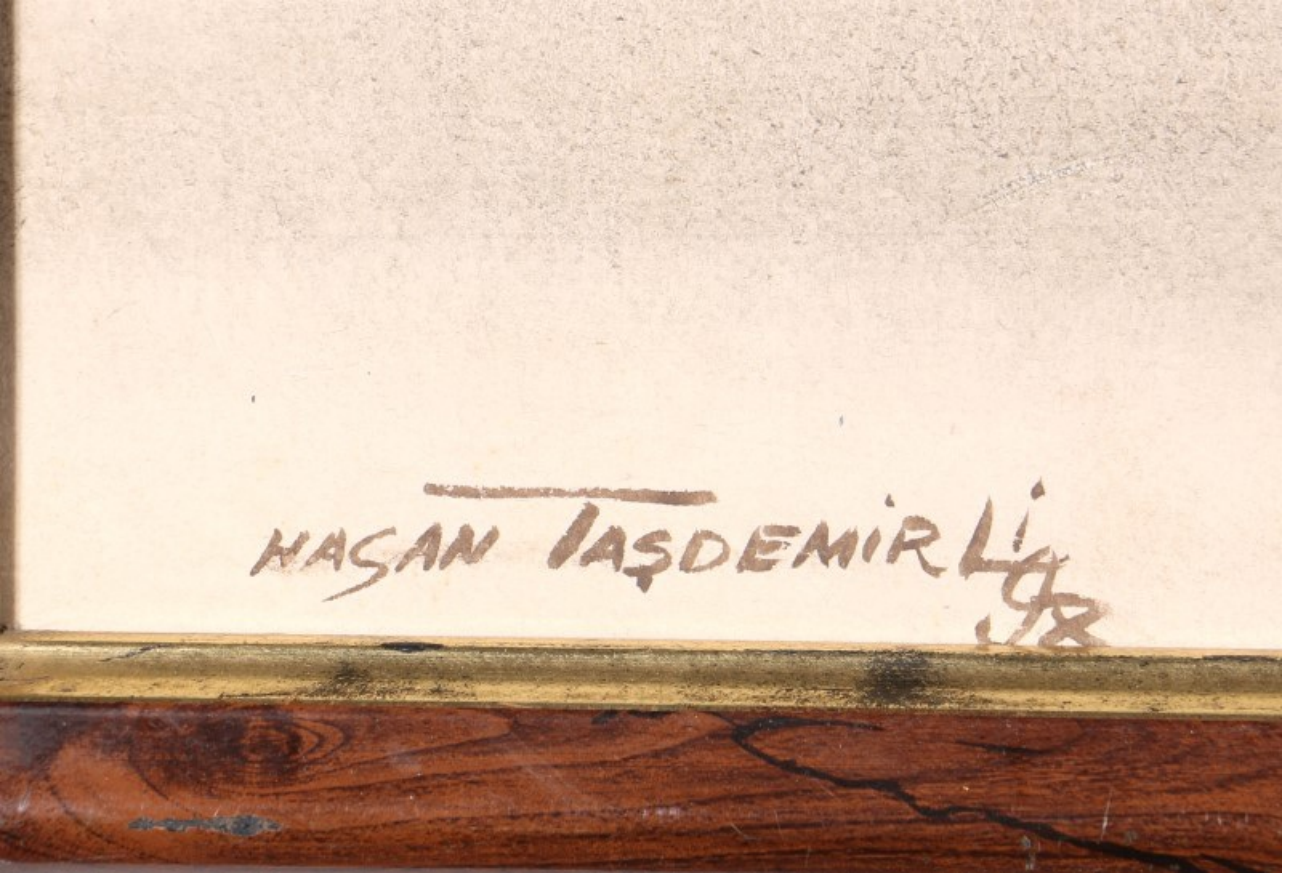 HASAN TAŞDEMİR Lİ
98